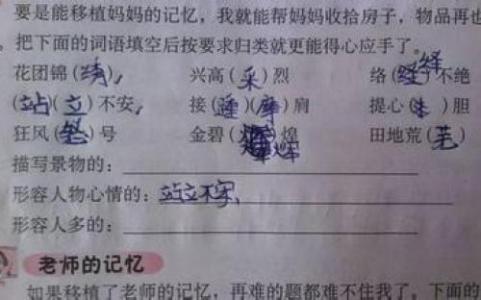 要是能移植妈妈的记忆,我就能帮妈妈收拾房子,物品再也
。把下面的词语填空后按要求归类就更能得心应手了。
花团锦(绣) 兴高(采)烈 络(绎)不绝
(站)(立)不安 接(踵)(摩)肩 提心()胆
狂风(怒)号 金碧(辉)煌 田地荒(芜)
描写景物的:
形容人物心情的:站立不安、
形容人多的:
老师的记忆
如果移植了老师的记忆,再难的题都难不住我了。下面的